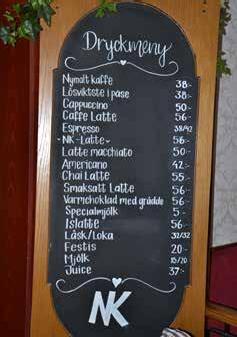 Dryckmeny
Nymalt kaffe 38:-
Lösviktste i påse 38:-
Cappucino 50:-
Caffe Latte 56:-
Espresso 38/42
-NK-Latte- 56:-
Latte macchiato 50:-
Americano 42:-
Chai Latte 55:-
Smaksatt Latte 56:-
Varmchoklad med grädde 56:-
Specialmjölk 5:-
Islatte 56:-
Läsk/Loka 32/32
Festis 20:-
Mjölk 15/20
Juice 37:-
NK